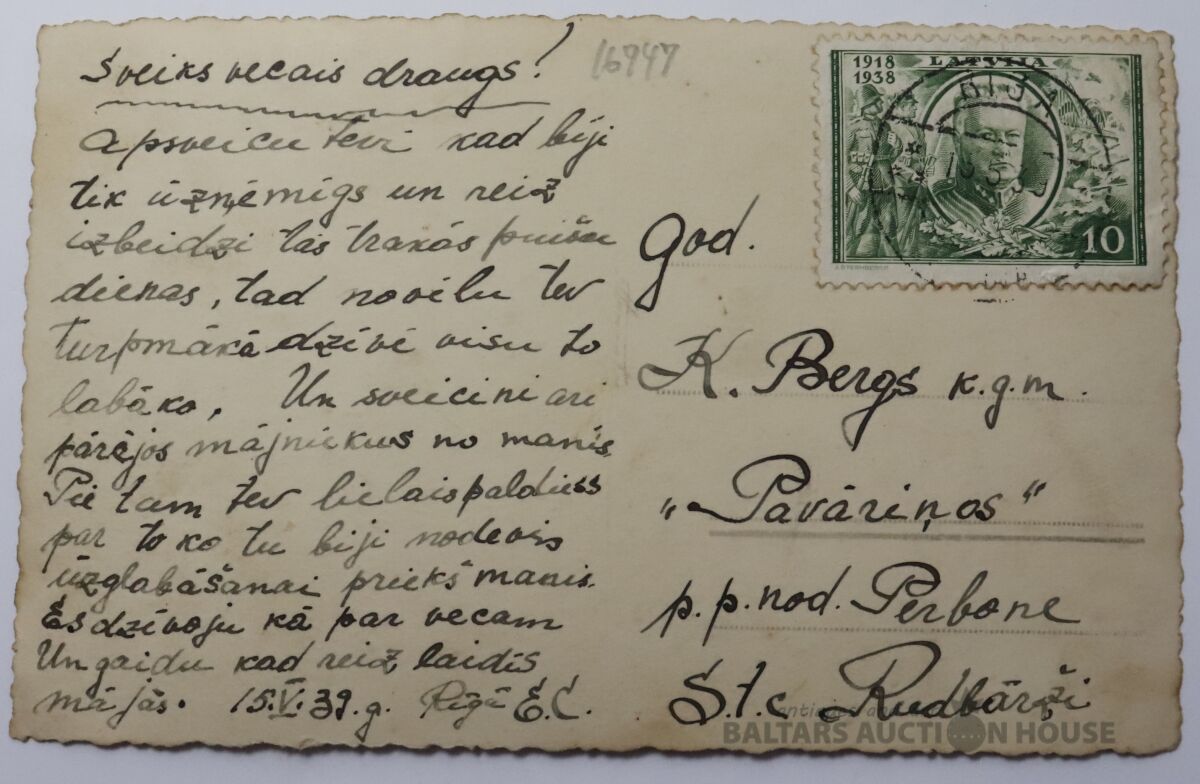 Sveiks vecais draugs!
16747
Apsveicu tevi kad biji
tik ūzņēmīgs un reiz
izbeidzi tās trakās puišu
dienas, tad novēlu tev
turpmākā dzīvē visu to
labāko. Un sveicini ari
pārējos mājniekus no manis.
Pie tam tev lielais paldiess
par to ko tu biji nodevis
ūzglabāšanai priekš manis.
Es dzīvoju kā par vecam
Un gaidu kad reiz laidīs
mājās. 15.V.39.g. Rīgā E.C.
1918
1938
LATVIJA
10
RIGA
God.
K. Bergs k.g.m.
"Pavāriņos"
p.p.nod. Perbone
St.c Rudbārži
BALTARS AUCTION HOUSE